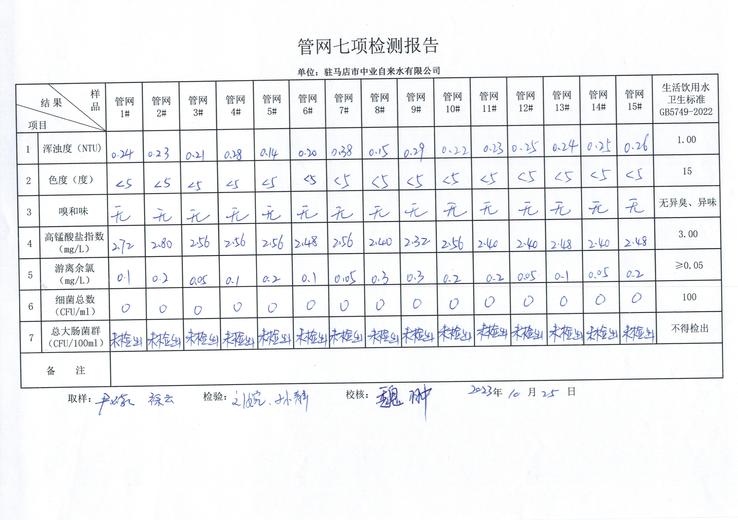 管网七项检测报告
单位：驻马店市中业自来水有限公司
结果 样品 项目 管网1# 管网2# 管网3# 管网4# 管网5# 管网6# 管网7# 管网8# 管网9# 管网10# 管网11# 管网12# 管网13# 管网14# 管网15# 生活饮用水卫生标准GB5749-2022
1 浑浊度（NTU) 0.24 0.23 0.21 0.28 0.14 0.20 0.38 0.15 0.29 0.22 0.23 0.25 0.24 0.25 0.26 1.00
2 色度（度） <5 <5 <5 <5 <5 <5 <5 <5 <5 <5 <5 <5 <5 <5 <5 15
3 嗅和味 无 无 无 无 无 无 无 无 无 无 无 无 无 无 无 无异臭、异味
4 高锰酸盐指数（mg/L） 2.72 2.80 2.56 2.56 2.56 2.48 2.56 2.40 2.32 2.56 2.40 2.40 2.48 2.40 2.48 3.00
5 游离余氯（mg/L） 0.1 0.2 0.05 0.1 0.2 0.1 0.05 0.3 0.3 0.2 0.2 0.05 0.1 0.05 0.2 ≥0.05
6 细菌总数（CFU/ml） 0 0 0 0 0 0 0 0 0 0 0 0 0 0 0 100
7 总大肠菌群（CFU/100ml） 未检出 未检出 未检出 未检出 未检出 未检出 未检出 未检出 未检出 未检出 未检出 未检出 未检出 未检出 未检出 不得检出
备 注
取样： 徐云 检验： 校核： 魏翀 2023年10月25日